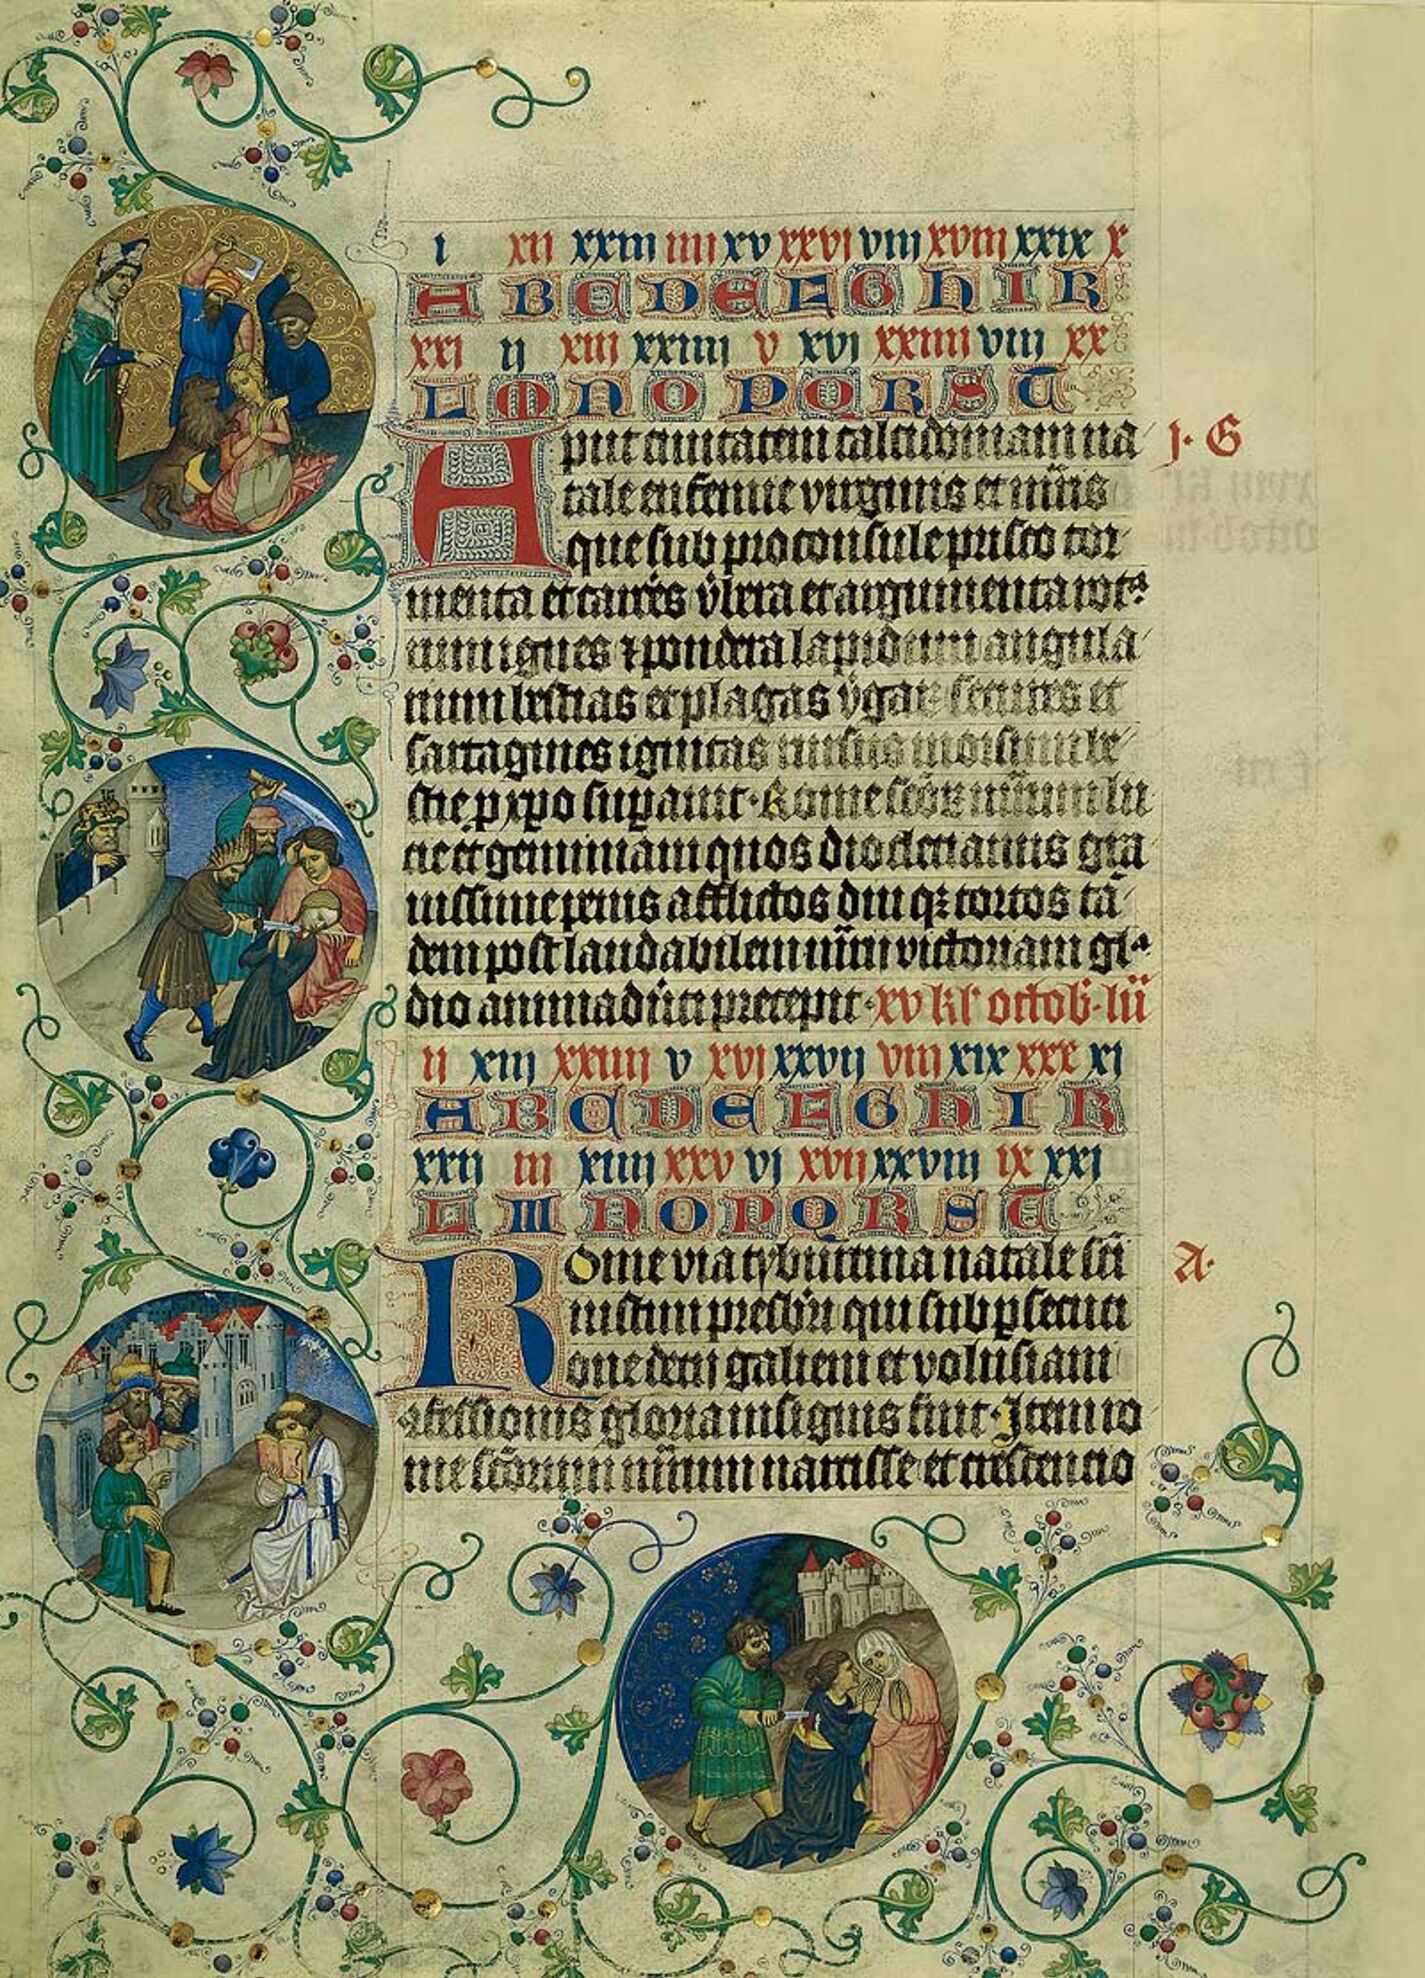 i xii xxiii iiii xv xxvi viii xviii xxix x
A B C D E F G H I K
xxi ij xiii xxiiii v xvi xxviii viii xx
L M N O P Q R S T
Aput ciuitatem calcidoniam na
j. G
tale eufemie virginis et m̄ris
que sub proconsule prisco tor
menta et carceres v̄bera et argumenta rota
rum ignes ⁊ pondera lapidum angula
rium bestias et plagas v̄gar̄ secures et
sartagines ignitas rursus morsum be
stie p xp̄o suꝑauit. Rome sc̄oꝝ m̄rum lu
cie et geminiani quos dioclecianus gra
uissime penis afflictos diu qꝫ tortos tā
dem post laudabilem m̄rii victoriam gla
dio animaduerti precepit. xv kl' octob. lu
ii xiij xxiiii v xvi xxvij viii xix xxx xi
A B C D E F G H I K
xxij iii xiiij xxv vi xvij xxviiii ix xxi
L M N O P Q R S T
Rome via tyburtina natale sc̄i
A.
iustini presbr̄i qui sub ꝑsecuti
one decij galieni et volusiani
ꝯfessionis gloria insignis fuit. Item ro
me sc̄orum m̄rum narcisse et crescencio